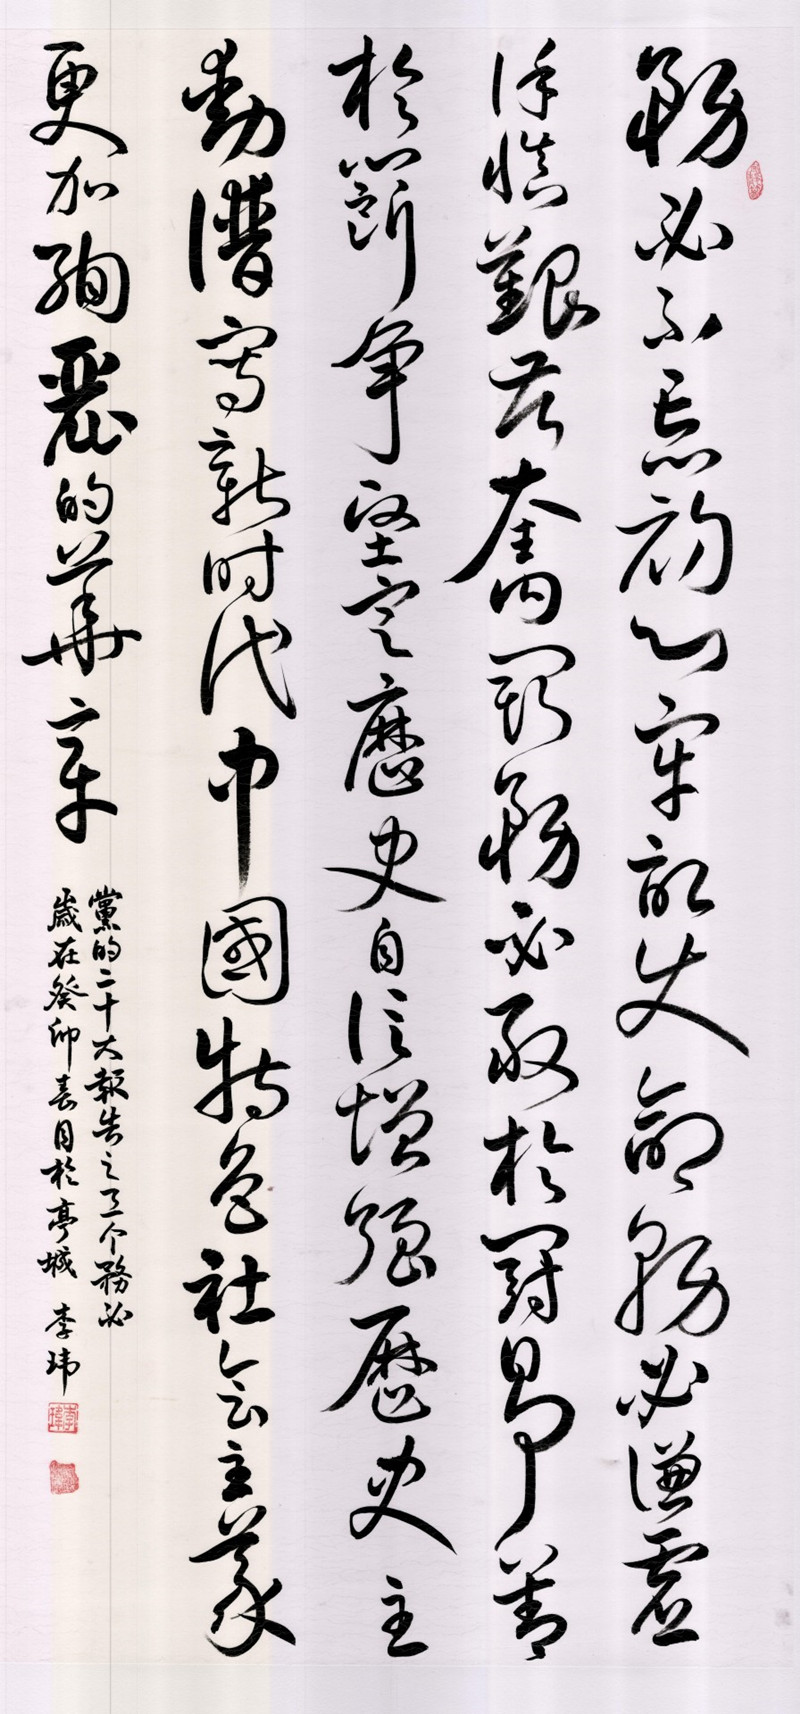 務必不忘初心牢記使命務必謙虛
謹慎艱苦奮鬭務必敢於鬭爭善
於鬭争堅定歷史自信增強歷史主
動譜寫新时代中國特色社会主義
更加絢麗的華章
黨的二十大報告之三个務必
歲在癸卯春月於亭城 李玮